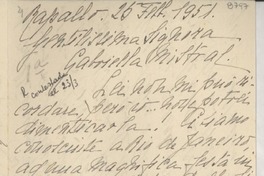 8747
Rapallo. 26 Feb. 1951.
Gentilissima Signora
Gabriella Mistral.
R contestada el 23/3
Lei non mi può ri
cordare, però io non potrò
dimenticarla. Ci siamo
conosciute a Rio de Janeiro,
ad una magnifica festa in